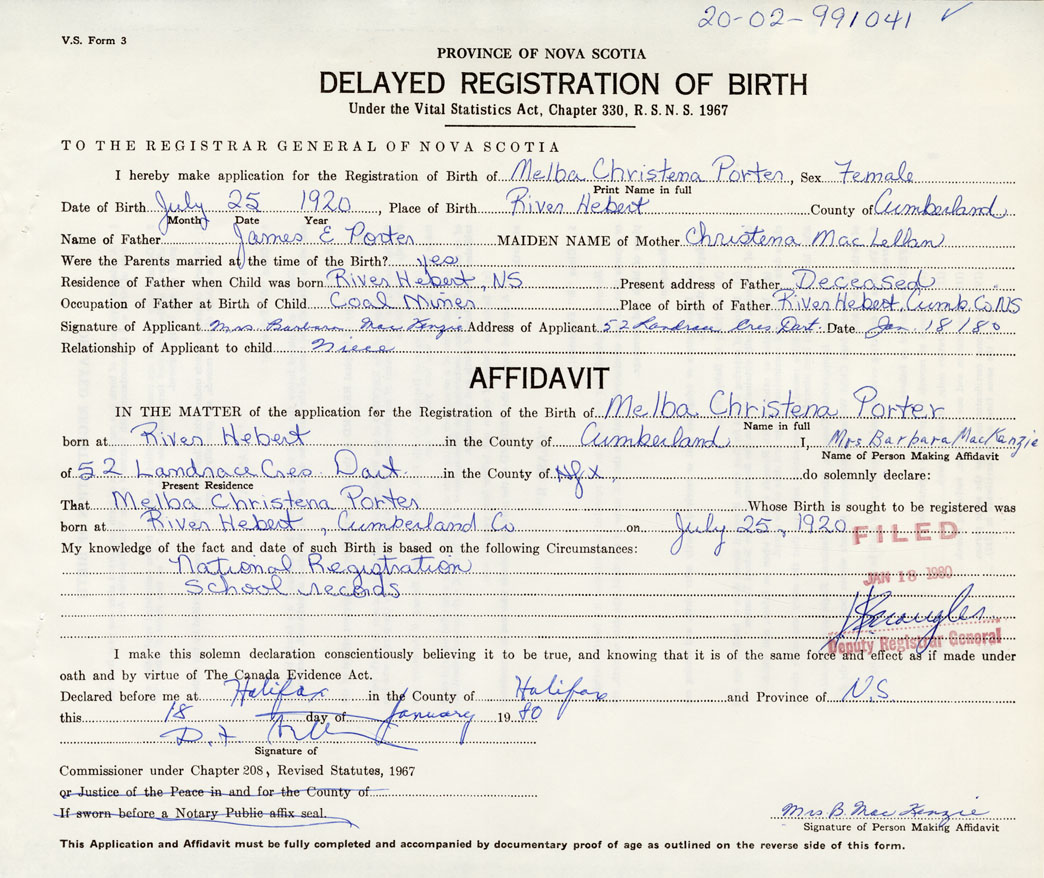 20-02-991041 ✓
V.S. Form 3
PROVINCE OF NOVA SCOTIA
DELAYED REGISTRATION OF BIRTH
Under the Vital Statistics Act, Chapter 330, R. S. N. S. 1967
TO THE REGISTRAR GENERAL OF NOVA SCOTIA
I hereby make application for the Registration of Birth of Melba Christena Porter, Sex Female
Print Name in full
Date of Birth July 25 1920, Place of Birth River Hebert County of Cumberland
Month Date Year
Name of Father James E Porter MAIDEN NAME of Mother Christena MacLellan
Were the Parents married at the time of the Birth? yes
Residence of Father when Child was born River Hebert, NS Present address of Father Deceased
Occupation of Father at Birth of Child Coal Miner Place of birth of Father River Hebert, Cumb. Co. NS
Signature of Applicant Mrs Barbara MacKenzie Address of Applicant 52 Landrace Cres Dart. Date Jan. 18/80
Relationship of Applicant to child Niece
AFFIDAVIT
IN THE MATTER of the application for the Registration of the Birth of Melba Christena Porter
Name in full
born at River Hebert in the County of Cumberland I, Mrs Barbara MacKenzie
Name of Person Making Affidavit
of 52 Landrace Cres. Dart. in the County of Hfx, do solemnly declare:
Present Residence
That Melba Christena Porter Whose Birth is sought to be registered was
born at River Hebert, Cumberland Co on July 25, 1920
FILED
My knowledge of the fact and date of such Birth is based on the following Circumstances:
National Registration
JAN 18 1980
School records
Deputy Registrar General
I make this solemn declaration conscientiously believing it to be true, and knowing that it is of the same force and effect as if made under
oath and by virtue of The Canada Evidence Act.
Declared before me at Halifax in the County of Halifax and Province of N.S.
this 18 day of January 19 80
Signature of
Commissioner under Chapter 208, Revised Statutes, 1967
or Justice of the Peace in and for the County of
If sworn before a Notary Public affix seal.
Mrs B. MacKenzie
Signature of Person Making Affidavit
This Application and Affidavit must be fully completed and accompanied by documentary proof of age as outlined on the reverse side of this form.